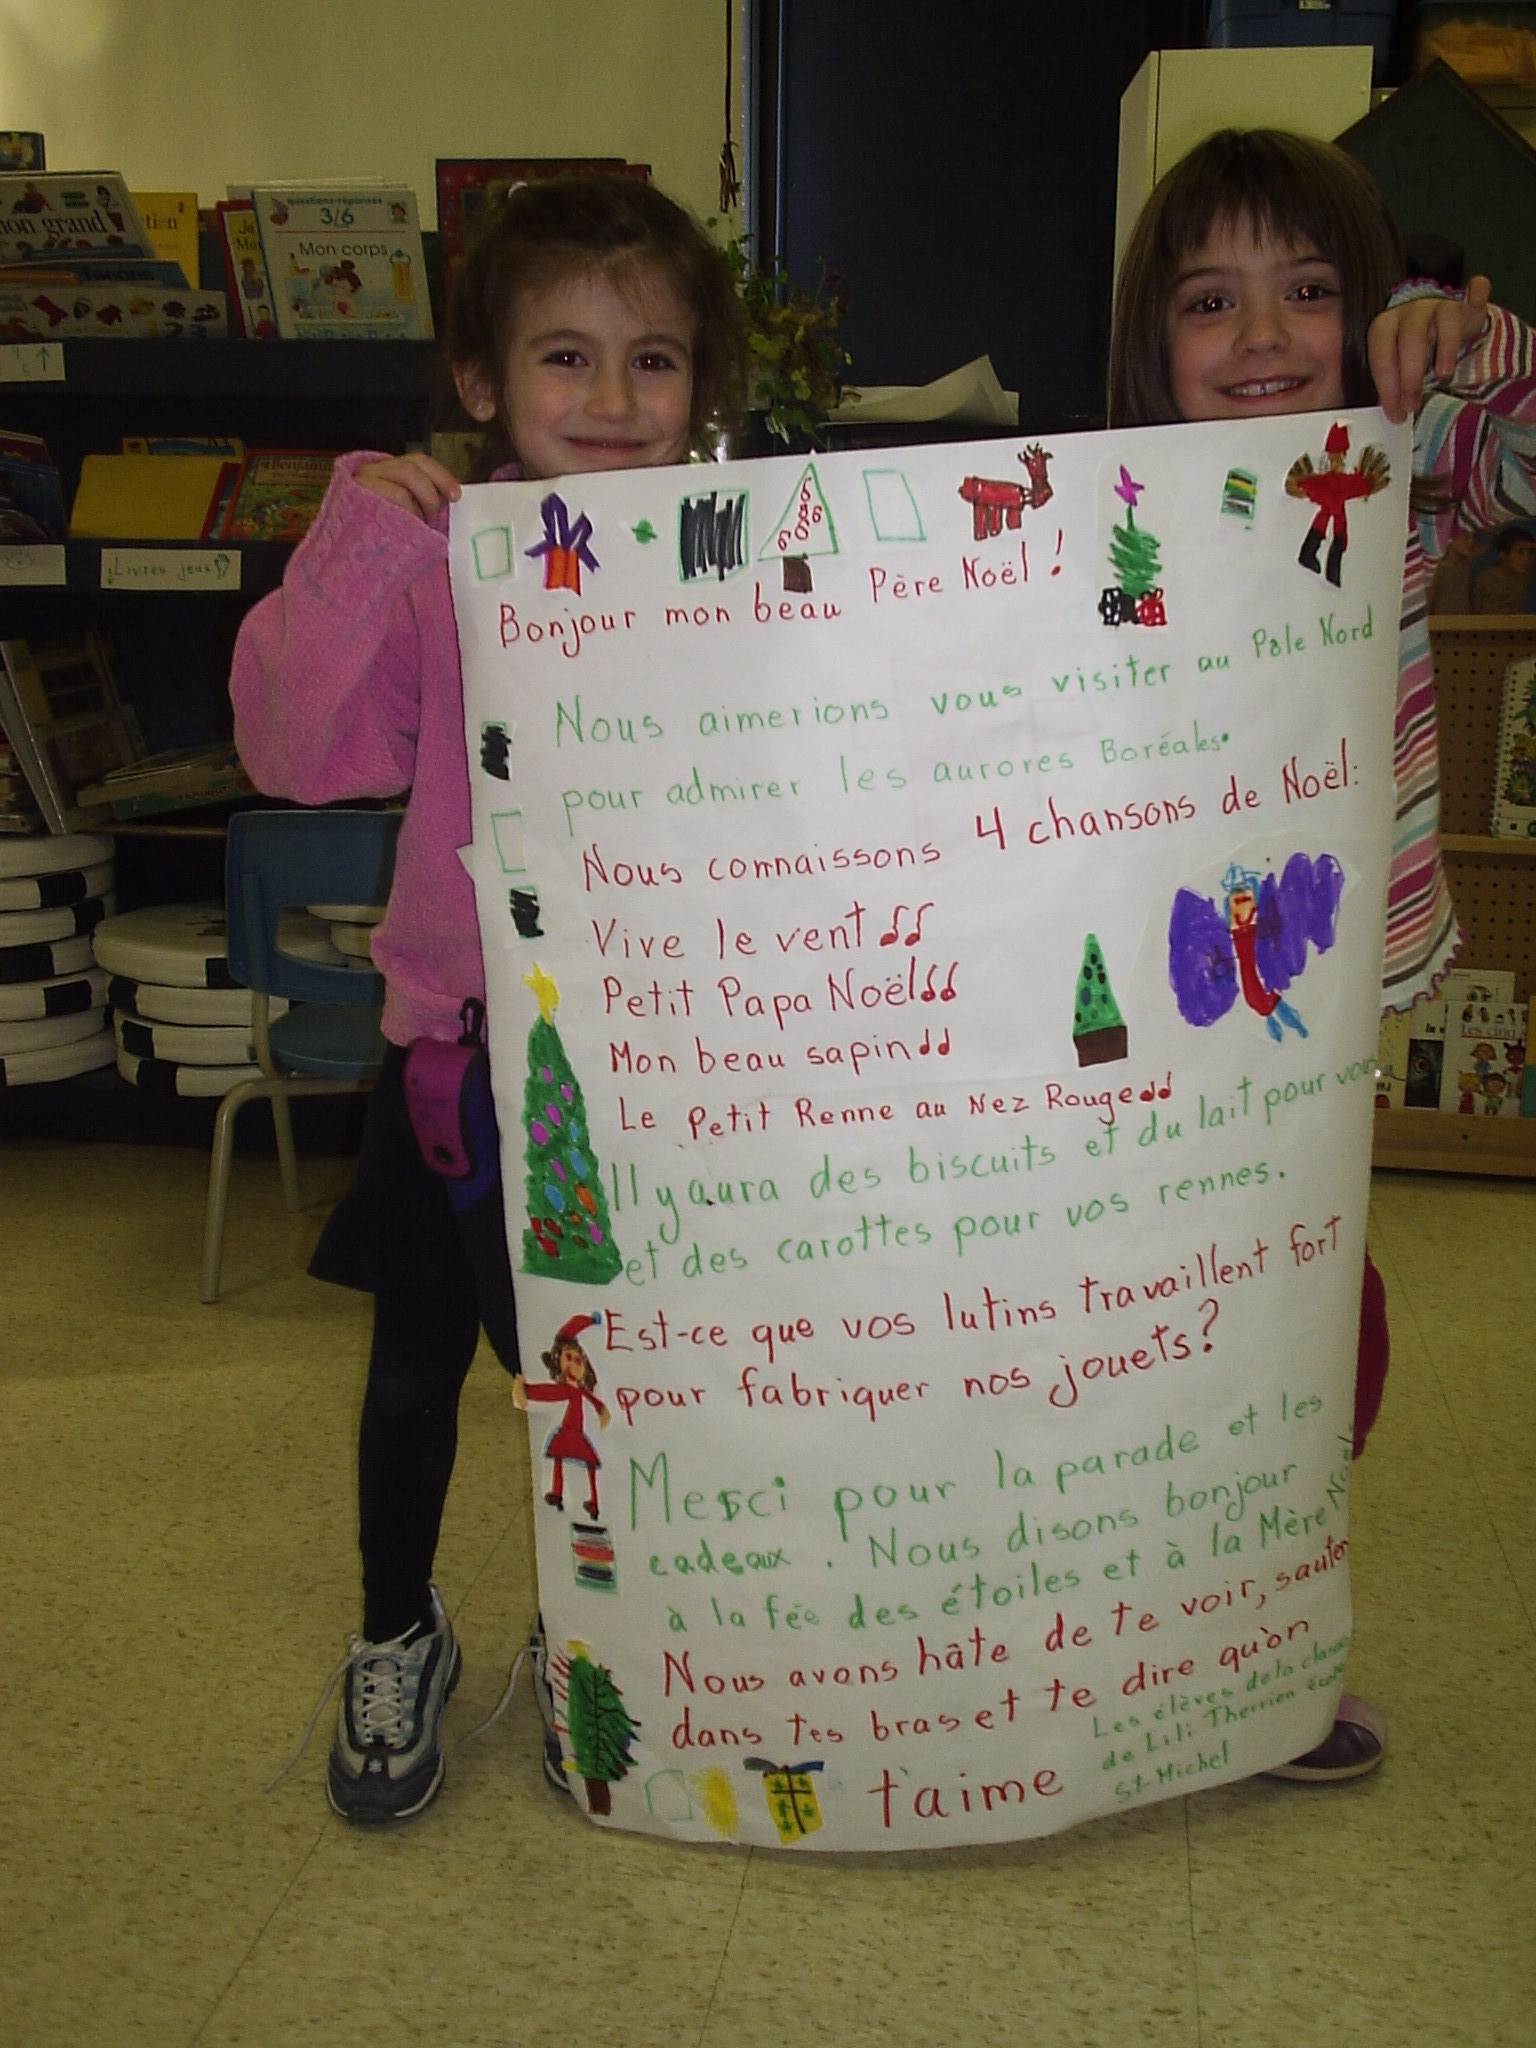 mon grand
questions-réponses
3/6
Mon corps
Benjamin
Livres jeux
Bonjour mon beau Père Noël !
Nous aimerions vous visiter au Pôle Nord
pour admirer les aurores Boréales.
Nous connaissons 4 chansons de Noël:
Vive le vent
Petit Papa Noël
Mon beau sapin
Le Petit Renne au Nez Rouge
Il y aura des biscuits et du lait pour vous
et des carottes pour vos rennes.
Est-ce que vos lutins travaillent fort
pour fabriquer nos jouets?
Merci pour la parade et les
cadeaux. Nous disons bonjour
à la fée des étoiles et à la Mère Noël.
Nous avons hâte de te voir, sauter
dans tes bras et te dire qu'on
t'aime
Les élèves de la classe
de Lili Therrien École
St-Michel